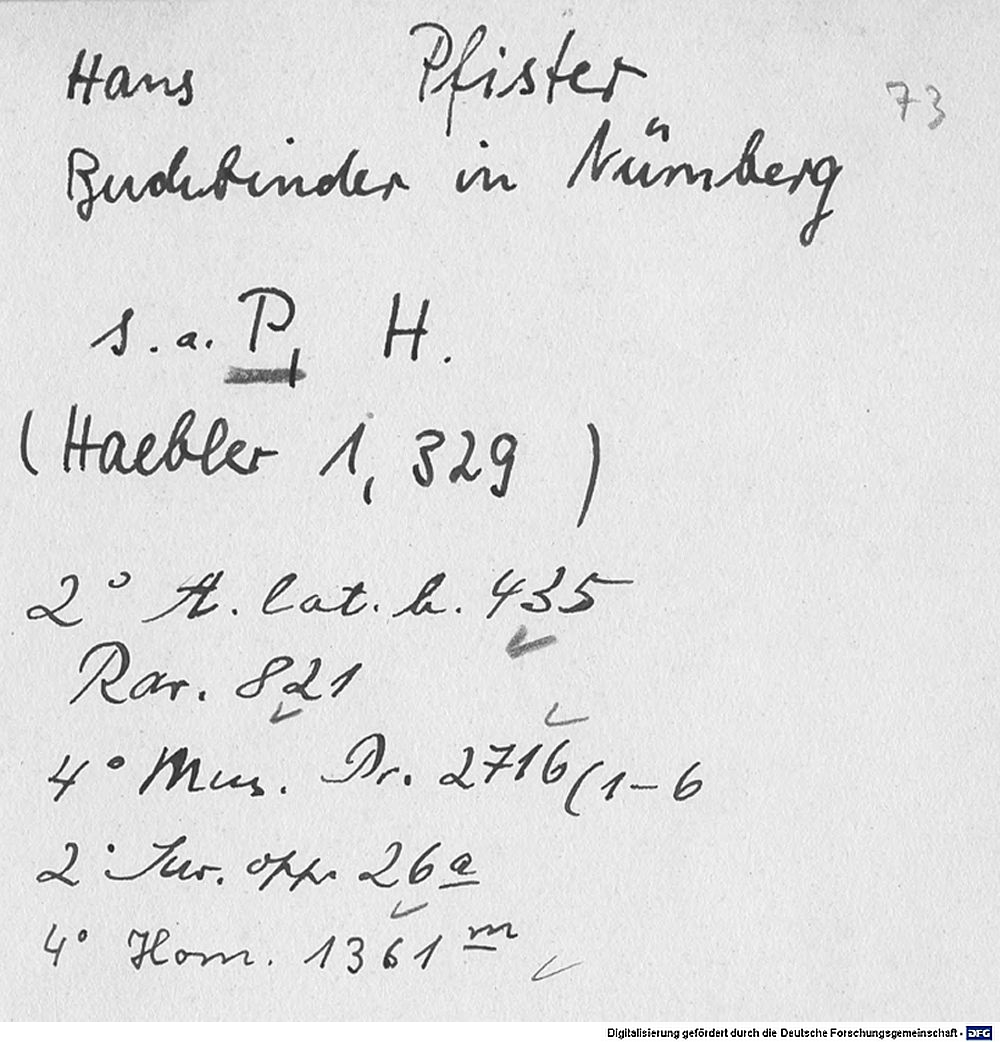 Hans Pfister 73
Buchbinder in Nürnberg
s. a. P, H.
(Haebler 1, 329 )
2° A. lat. b. 435
Rar. 821
4° Mus. Pr. 2716(1-6
2° Jur. opp. 26a
4° Hom. 1361 m
Digitalisierung gefördert durch die Deutsche Forschungsgemeinschaft - DFG